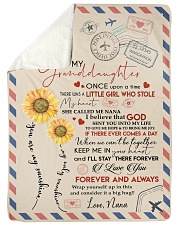 MY
Granddaughter
ONCE upon a time
THERE WAS A LITTLE GIRL WHO STOLE
My heart
SHE CALLED ME NANA
I believe that GOD
SENT YOU INTO MY LIFE
TO GIVE ME HOPE & TO BRING ME JOY
IF THERE EVER COMES A DAY
When we can't be together
KEEP ME IN your heart
and I'll STAY THERE FOREVER
I Love You
FOREVER AND ALWAYS
Wrap yourself up in this
and consider it a big hug!
Love, Nana
You are my sunshine
my only sunshine